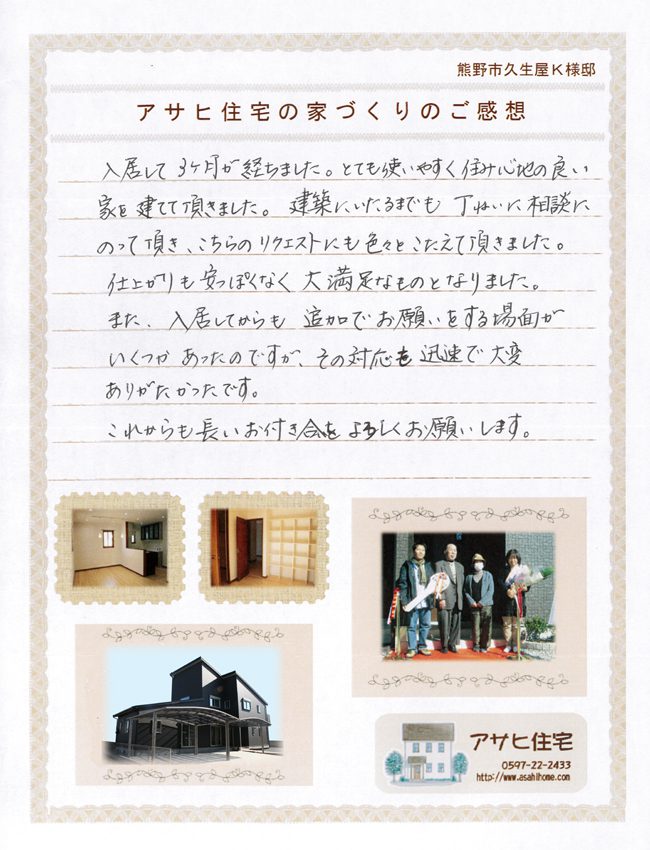 熊野市久生屋K様邸
アサヒ住宅の家づくりのご感想
入居して3ヶ月が経ちました。とても使いやすく住み心地の良い
家を建てて頂きました。建築にいたるまでも丁ねいに相談に
のって頂き、こちらのリクエストにも色々とこたえて頂きました。
仕上がりも安っぽくなく大満足なものとなりました。
また、入居してからも追加でお願いをする場面が
いくつかあったのですが、その対応も迅速で大変
ありがたかったです。
これからも長いお付き合をよろしくお願いします。
アサヒ住宅
0597-22-2433
http://www.asahihome.com